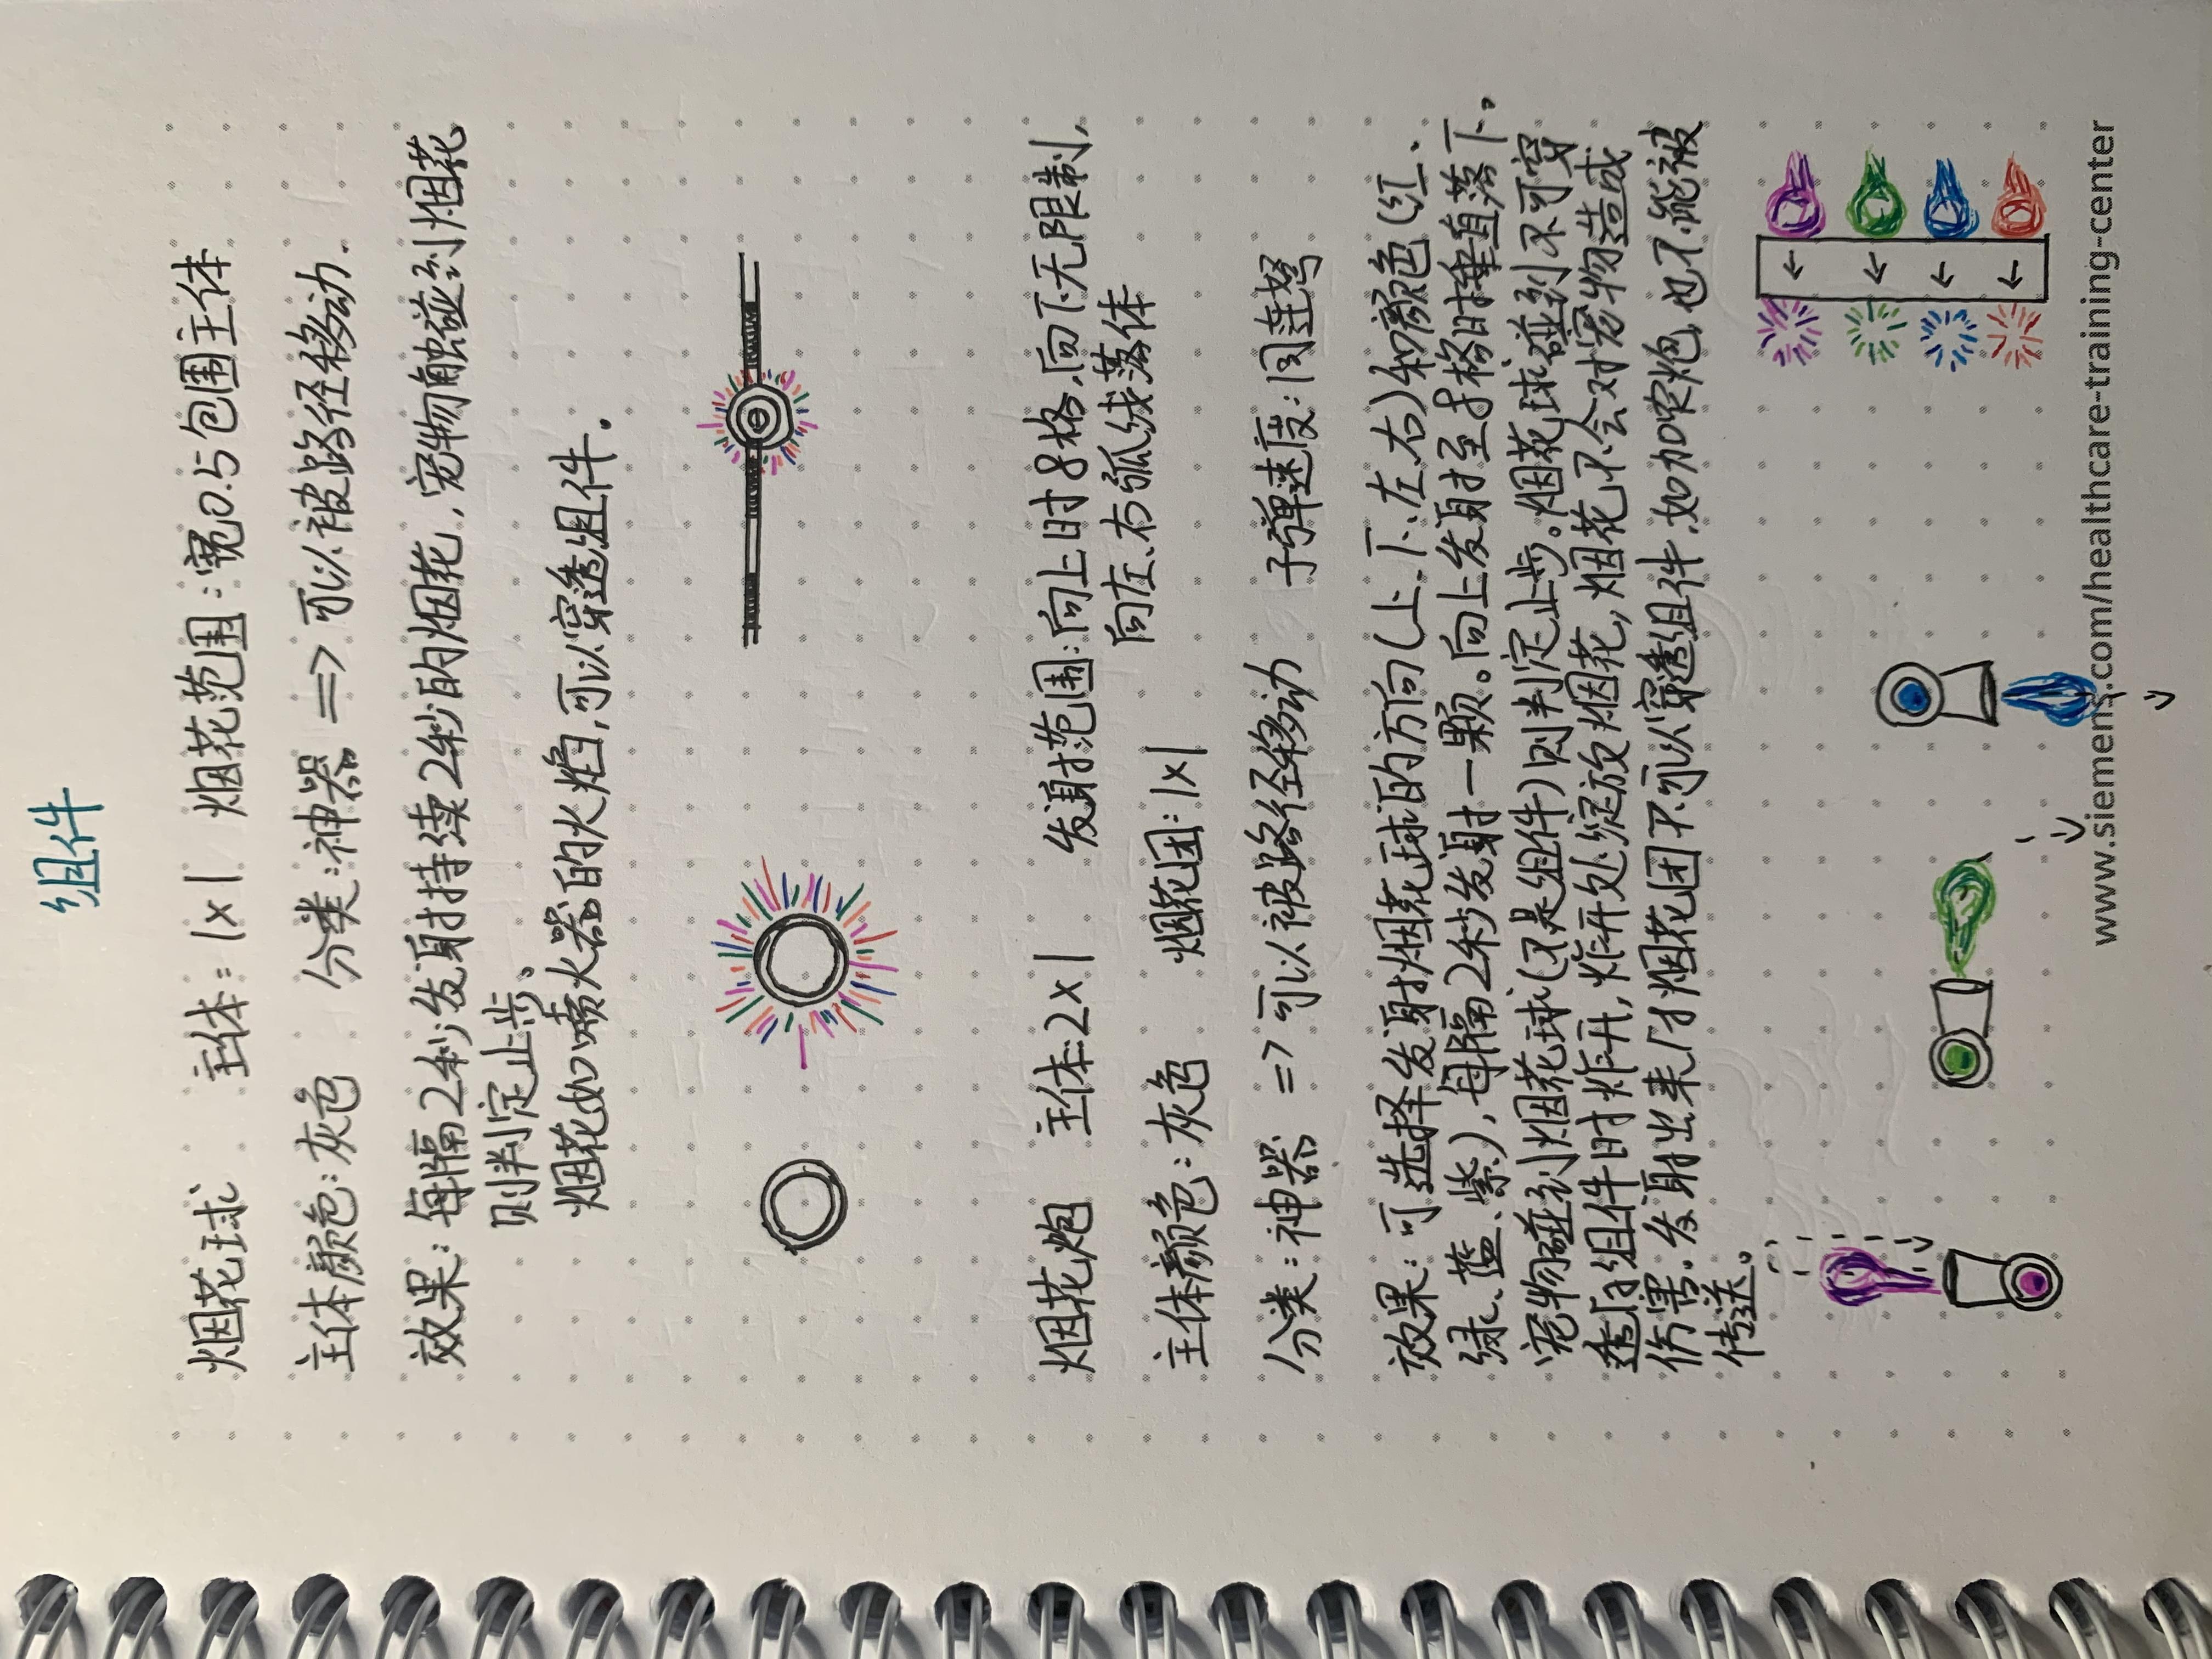 组件
烟花球 主体:1×1 烟花范围:宽0.5包围主体
主体颜色:灰色 分类:神器 => 可以被路径移动.
效果:每隔2秒发射持续2秒的烟花,宠物触碰到烟花
则判定止步、
烟花如喷火器的火焰,可以穿透组件.
烟花炮 主体:2×1 发射范围:向上时8格,向下无限制,
向左、右弧线落体
主体颜色:灰色 烟花团:1×1
分类:神器 => 可以被路径移动 子弹速度:同连弩
效果:可选择发射烟花球的方向(上、下、左、右)和颜色(红、
绿、蓝、紫),每隔2秒发射一颗。向上发射至8格时垂直落下。
宠物碰到烟花球(只是组件)则判定止步。烟花球碰到不可穿
透的组件时炸开,炸开处绽放烟花,烟花不会对宠物造成
伤害.发射出来的烟花团不可以穿透组件.如加农炮,也不能被
传送。
www.siemens.com/healthcare-training-center